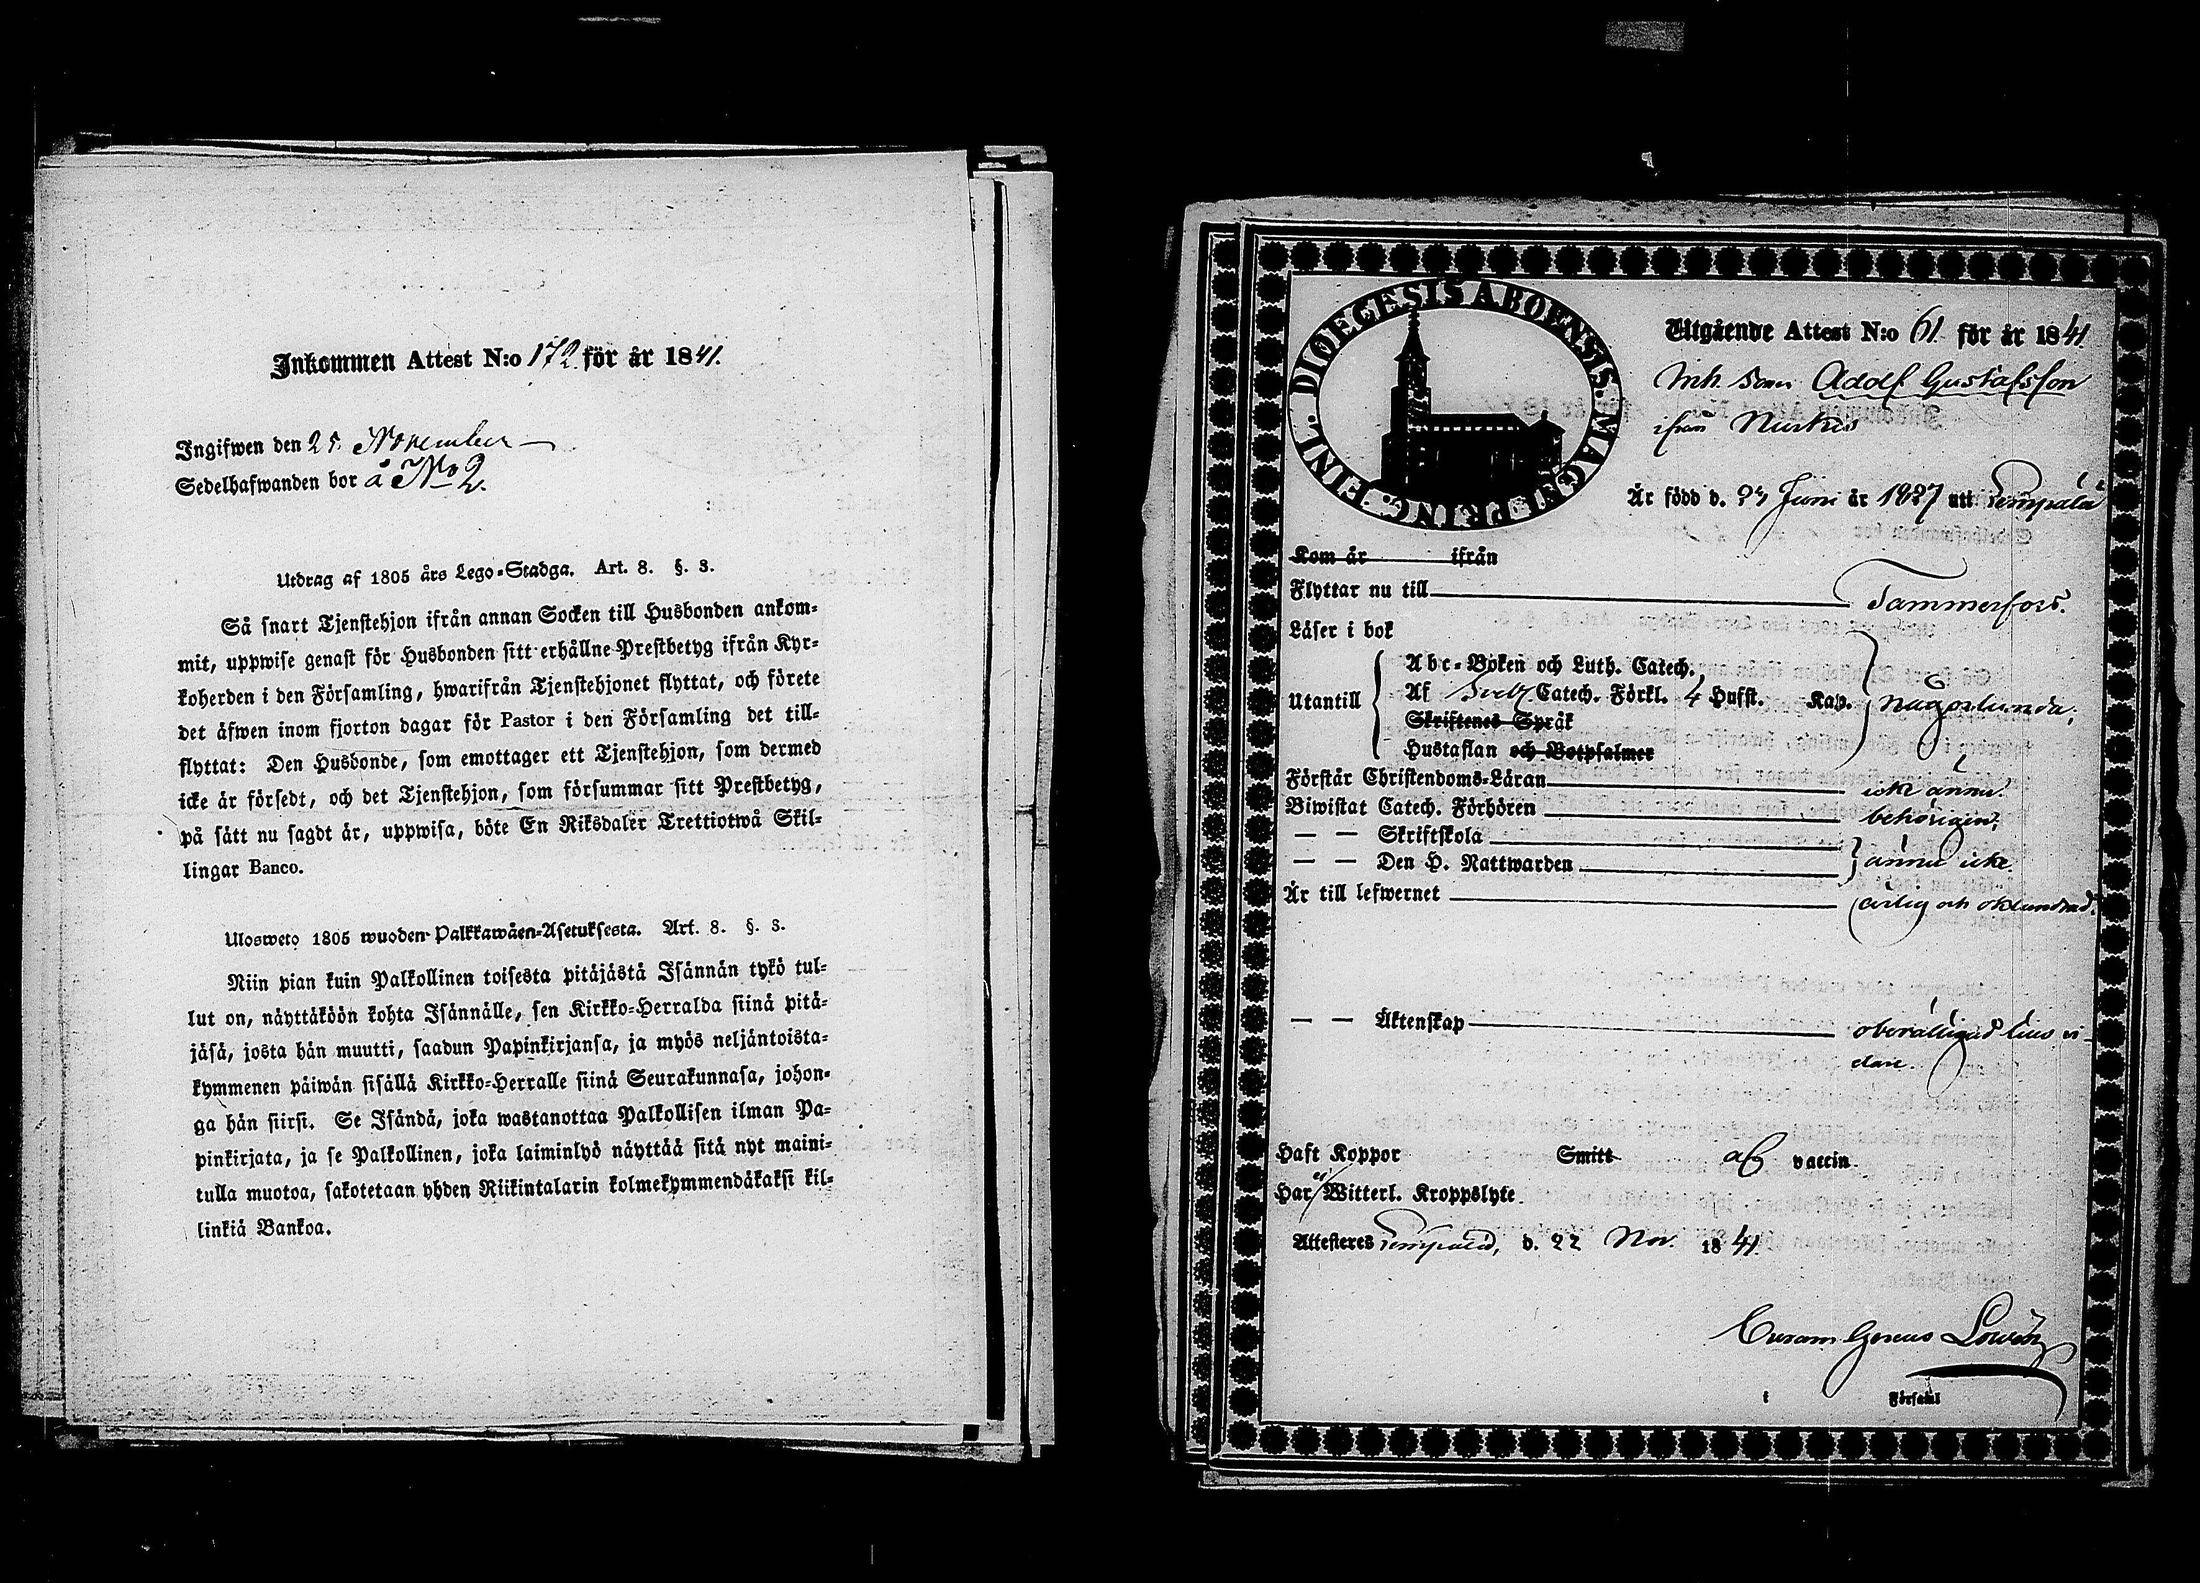 Inkommen Attest N:o 172. för år 1841.
Ingifwen den 25 November
Sedelhafwanden bor å No 2.
Utdrag af 1805 års Lego-Stadga. Art. 8. §. 3.
Så snart Tjenstehjon ifrån annan Socken till Husbonden ankom-
mit, uppwise genast för Husbonden sitt erhållne Prestbetyg ifrån Kyr-
koherden i den Församling, hwarifrån Tjenstehjonet flyttat, och förete
det äfwen inom fjorton dagar för Pastor i den Församling det till-
flyttat: Den Husbonde, som emottager ett Tjenstehjon, som dermed
icke är försedt, och det Tjenstehjon, som försummar sitt Prestbetyg,
på sätt nu sagdt är, uppwisa, böte En Riksdaler Trettiotwå Skil-
lingar Banco.
Ulosweto 1805 wuoden Palkkawäen-Asetuksesta. Art. 8. §. 3.
Niin pian kuin Palkollinen toisesta pitäjästä Isännän tykö tul-
lut on, näyttäköön kohta Isännälle, sen Kirkko-Herralda siinä pitä-
jäsä, josta hän muutti, saadun Papinkirjansa, ja myös neljäntoista-
kymmenen päiwän sisällä Kirkko-Herralle siinä Seurakunnasa, johon-
ga hän siirsi. Se Isändä, joka wastanottaa Palkollisen ilman Pa-
pinkirjata, ja se Palkollinen, joka laiminlyö näyttää sitä nyt maini-
tulla muotoa, sakotetaan yhden Riikintalarin kolmekymmendäkaksi kil-
linkiä Bankoa.
DIOECESIS ABOENSIS. MAGNI PRINC. FINL.
Utgående Attest N:o 61 för år 1841
Inh. son Adolf Gustafsson
ifrån
Är född d. 23 Juni år 1827 uti Lempälä
Kom år ifrån
Flyttar nu till Tammerfors.
Läser i bok
Abc-Boken och Luth. Catech.
Utantill Af Catech. Förkl. 4 Hufst. Kap. någorlunda,
Skriftenes Språk
Hustaflan och Botpsalmer
Förstår Christendoms-Läran icke ännu.
Biwistat Catech. Förhören behörigen,
— — Skriftskola
— — Den H. Nattwarden ännu icke.
Är till lefwernet ärlig och oklandrad.
— — Äktenskap
dare.
Haft Koppor Smitt af vaccin.
Har ej Witterl. Kroppslyte.
Attesteres Lempälä, d. 22 Nov. 1841
Curam Gerens
i Församl